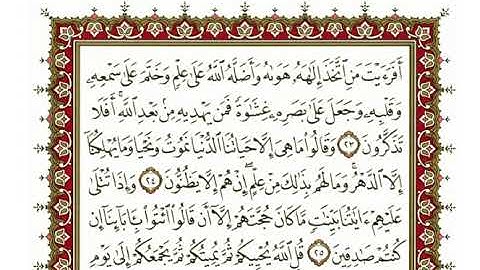 أَفَرَءَيْتَ مَنِ ٱتَّخَذَ إِلَٰهَهُۥ هَوَىٰهُ وَأَضَلَّهُ ٱللَّهُ عَلَىٰ عِلْمٍ وَخَتَمَ عَلَىٰ سَمْعِهِۦ
وَقَلْبِهِۦ وَجَعَلَ عَلَىٰ بَصَرِهِۦ غِشَٰوَةً فَمَن يَهْدِيهِ مِنۢ بَعْدِ ٱللَّهِ ۚ أَفَلَا
تَذَكَّرُونَ ٢٣ وَقَالُوا۟ مَا هِىَ إِلَّا حَيَاتُنَا ٱلدُّنْيَا نَمُوتُ وَنَحْيَا وَمَا يُهْلِكُنَآ
إِلَّا ٱلدَّهْرُ ۚ وَمَا لَهُم بِذَٰلِكَ مِنْ عِلْمٍ ۖ إِنْ هُمْ إِلَّا يَظُنُّونَ ٢٤ وَإِذَا تُتْلَىٰ
عَلَيْهِمْ ءَايَٰتُنَا بَيِّنَٰتٍ مَّا كَانَ حُجَّتَهُمْ إِلَّآ أَن قَالُوا۟ ٱئْتُوا۟ بِـَٔابَآئِنَآ إِن
كُنتُمْ صَٰدِقِينَ ٢٥ قُلِ ٱللَّهُ يُحْيِيكُمْ ثُمَّ يُمِيتُكُمْ ثُمَّ يَجْمَعُكُمْ إِلَىٰ يَوْمِ